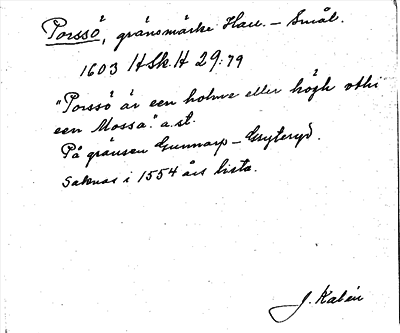 Porssö, gränsmärke Hall. – Smål.
1603 HSk.H 29:79
"Porssö är een holme eller högh vthi
een Mossa." a.st.
På gränsen Gunnarp – Gryteryd.
Saknas i 1554 års lista.
J. Kalén